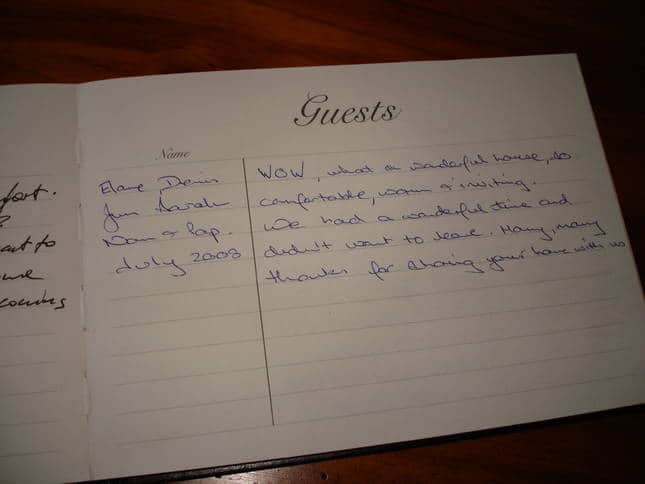 fort.
to
me
coming
Guests
Name
Elaine, Denis
Jim Sarah
Nan & Pap.
July 2008
WOW, what a wonderful house, so
comfortable, warm & inviting.
We had a wonderful time and
didn't want to leave. Many, many
thanks for sharing your home with us